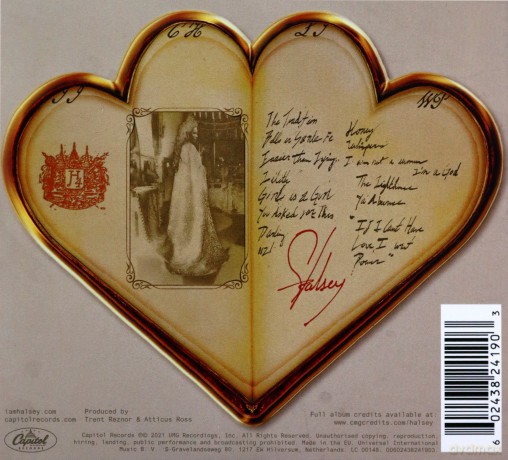 CH
LJ
JJ
WP
H
The Tradition
Bells in Santa Fe
Easier Than Lying
Lilith
Girl is a Gun
You Asked For This
Darling
1121
Honey
Whispers
I am not a woman
I'm a God
The Lighthouse
Ya'Aburnee
"If I Can't Have
Love, I want
Power"
Halsey
iamhalsey.com
capitolrecords.com
Produced by
Trent Reznor & Atticus Ross
Full album credits available at
www.cmgcredits.com/halsey
Capitol
RECORDS
Capitol Records © 2021 UMG Recordings, Inc. All Rights Reserved. Unauthorised copying, reproduction,
hiring, lending, public performance and broadcasting prohibited. Made in the EU. Universal International
Music B.V. 's-Gravelandseweg 80, 1217 EW Hilversum, Netherlands. LC 00148. 00602438241903
6 02438 24190 3